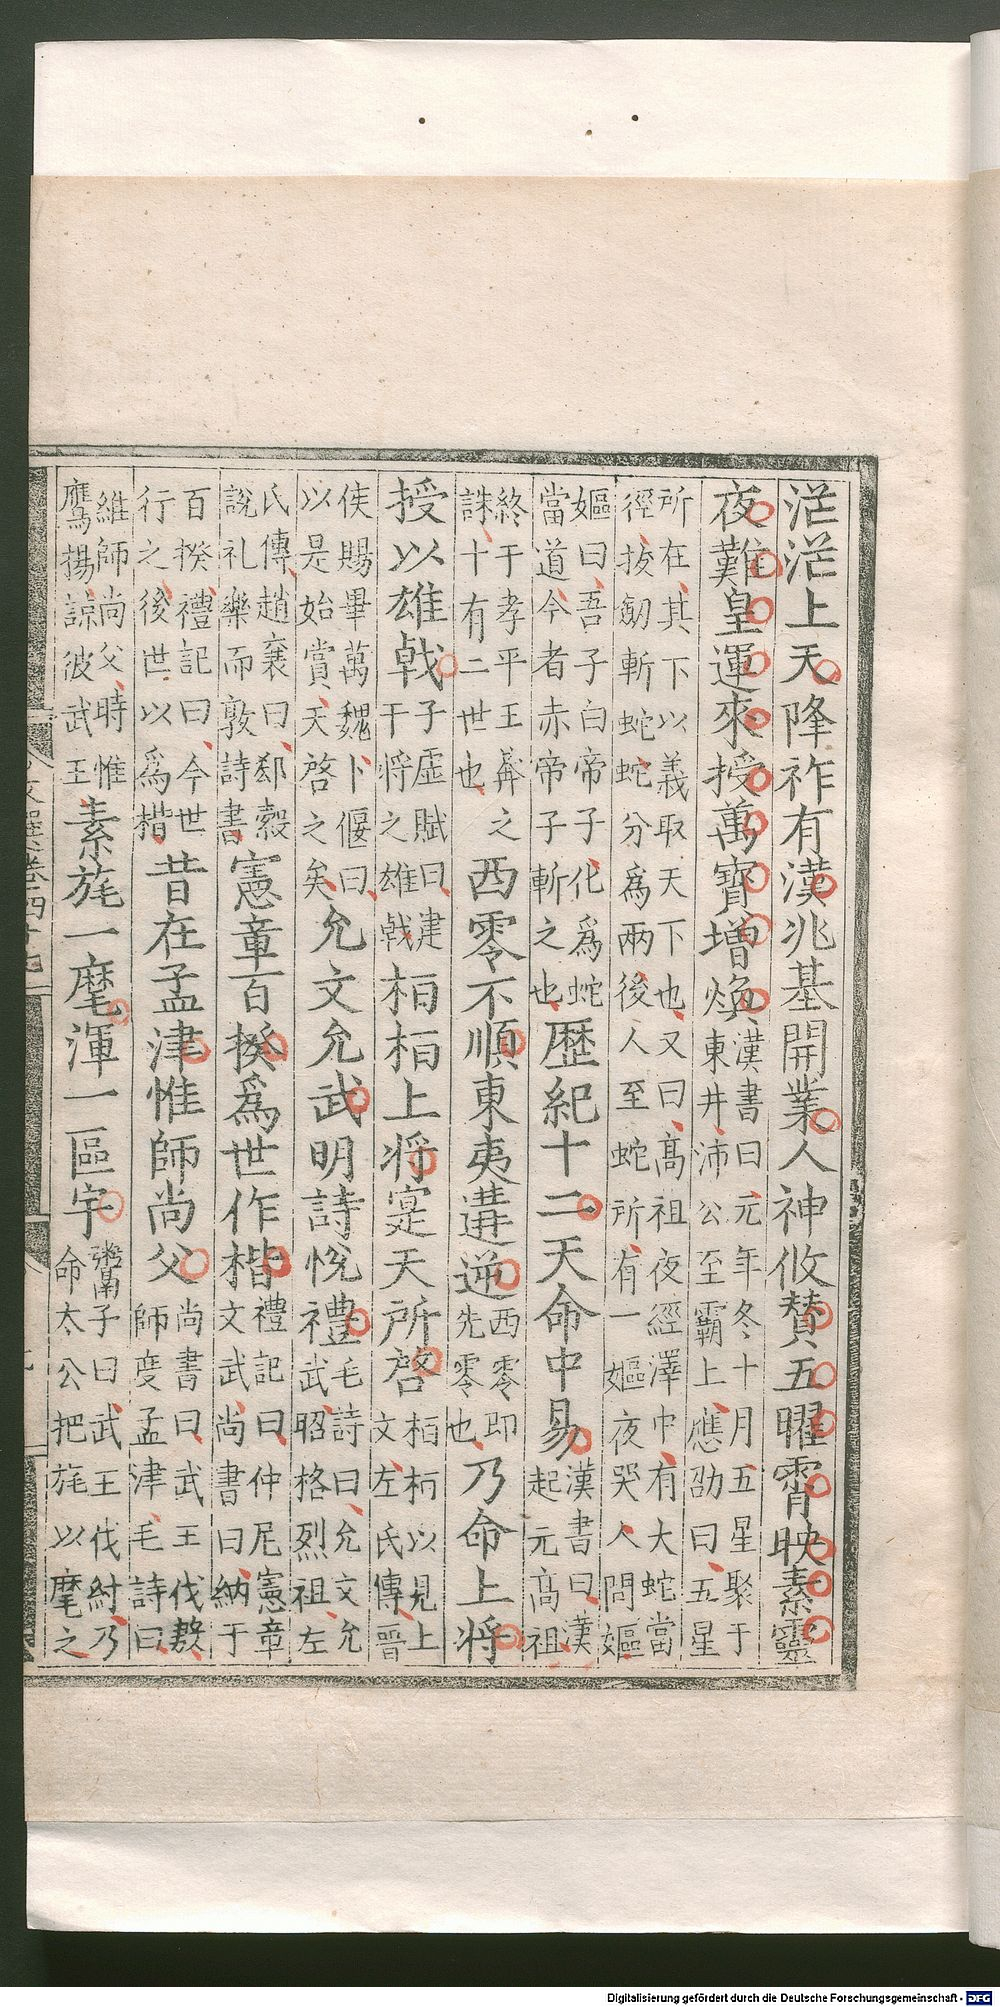 茫茫上天降祚有漢兆基開業人神攸賛五曜霄映素靈
夜難皇運來授萬寶增煥
漢書曰元年冬十月五星聚于
東井沛公至霸上應劭曰五星
所在其下以義取天下也又曰高祖夜經澤中有大蛇當
徑拔劒斬蛇蛇分爲兩後人至蛇所有一嫗夜哭人問嫗
嫗曰吾子白帝子化爲蛇
當道今者赤帝子斬之也
歷紀十二天命中易
漢書曰漢
起元高祖
終于孝平王莽之
誅十有二世也
西零不順東夷遘逆
西零即
先零也
乃命上將
授以雄戟
子虛賦曰建
干將之雄戟
桓桓上將寔天所啓
桓桓以見上
文左氏傳晉
侯賜畢萬魏卜偃曰
以是始賞天啓之矣
允文允武明詩悅禮
毛詩曰允文允
武昭格烈祖左
氏傳趙襄曰郤縠
說礼樂而敦詩書
憲章百揆爲世作楷
禮記曰仲尼憲章
文武尚書曰納于
百揆禮記曰今世
行之後世以爲楷
昔在孟津惟師尚父
尚書曰武王伐殷
師度孟津毛詩曰
維師尚父時惟
鷹揚諒彼武王
素旄一麾渾一區宇
鬻子曰武王伐紂乃
命太公把旄以麾之
文選卷四十七
Digitalisierung gefördert durch die Deutsche Forschungsgemeinschaft - DFG